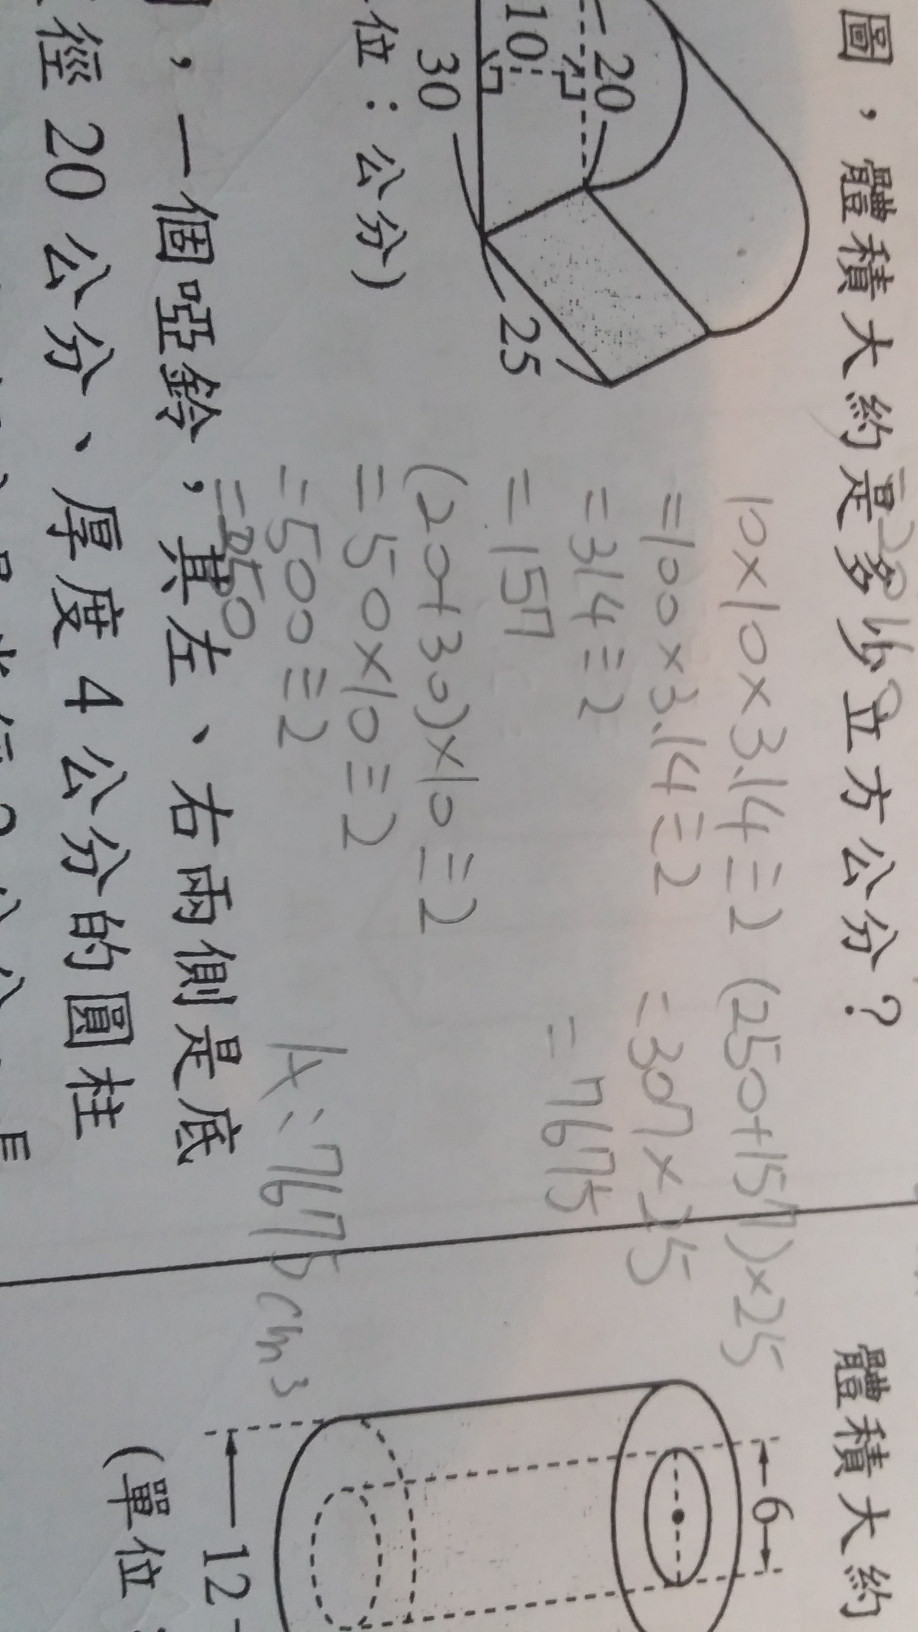 圖，體積大約是多少立方公分？
20
10
30
25
位：公分）
10×10×3.14÷2
=100×3.14÷2
=314÷2
=157
(20+30)×10÷2
=50×10÷2
=500÷2
=250
(250+157)×25
=307×25
=7675
A:7675cm3
，一個啞鈴，其左、右兩側是底
徑20公分、厚度4公分的圓柱
體積大約
6
12
（單位